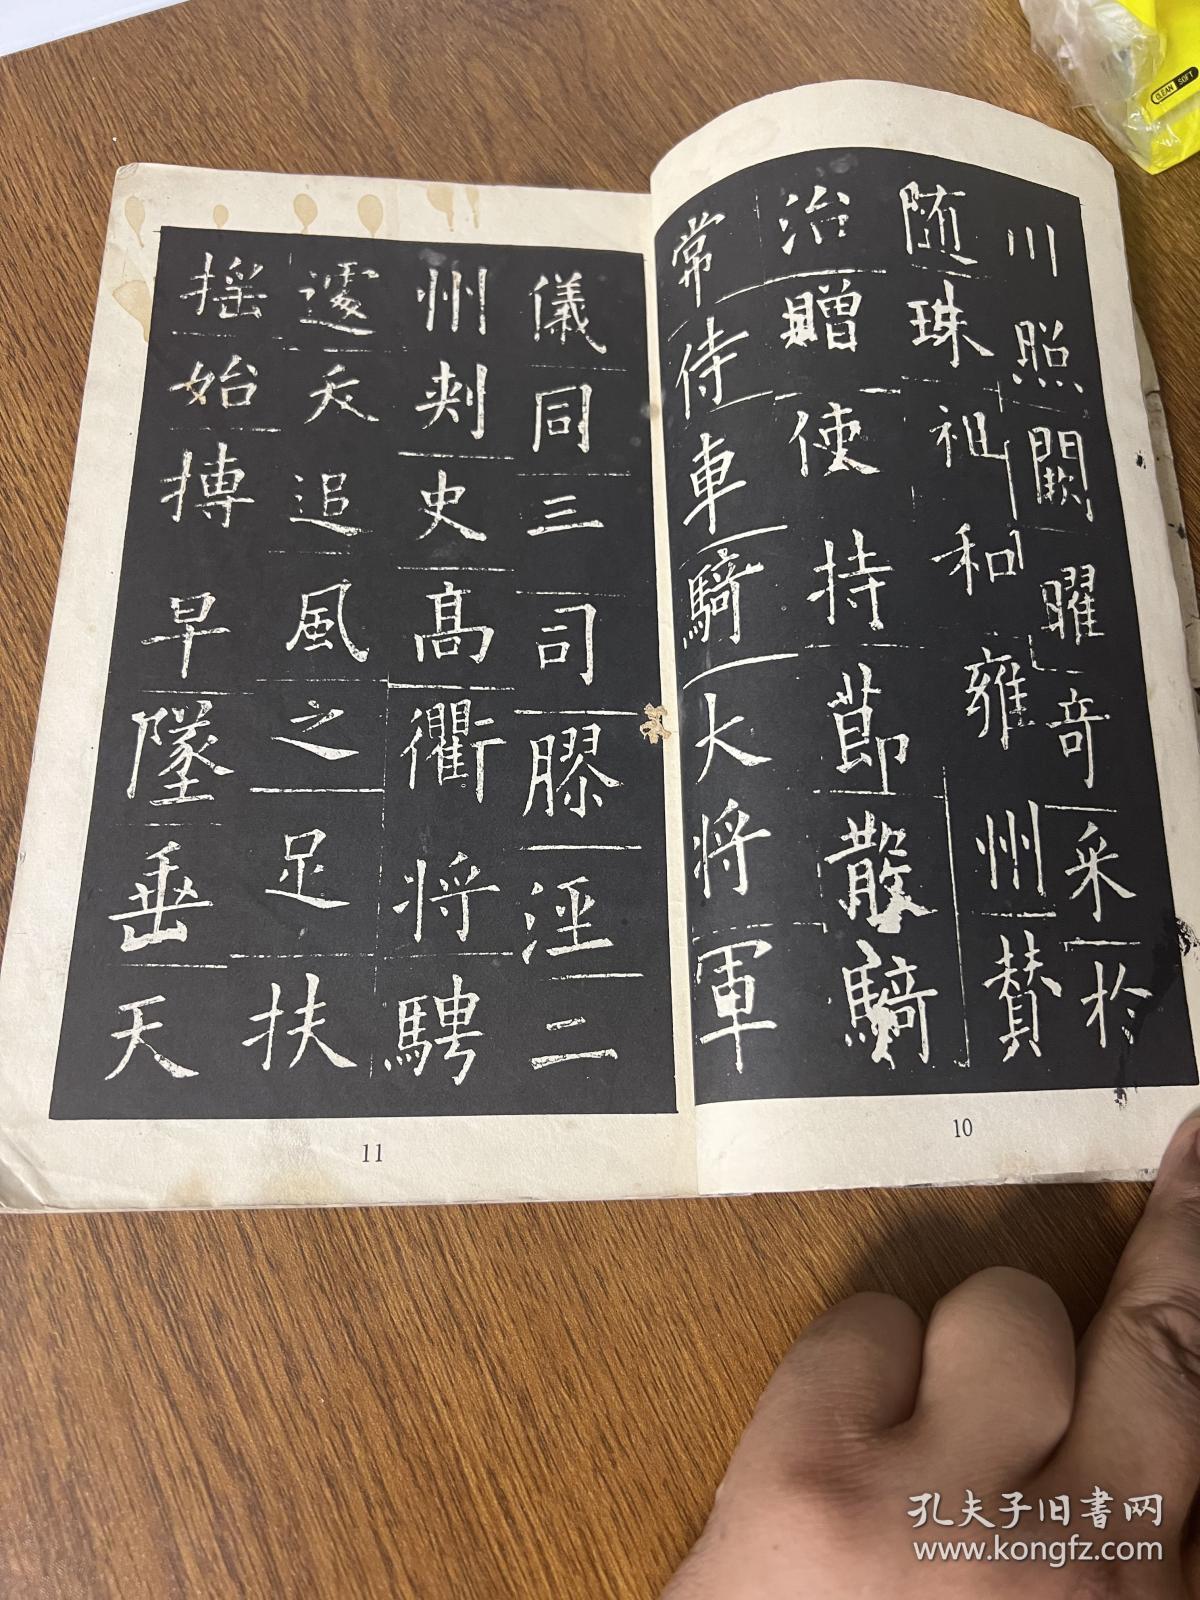 川照闕曜奇采於
随珠祖和雍州賛
治贈使持莭散騎
常侍車騎大将軍
10
儀同三司膠涇二
州刾史髙衢将騁
遽夭追風之足扶
揺始摶早墜垂天
11
CLEAN SOFT
孔夫子旧书网
www.kongfz.com